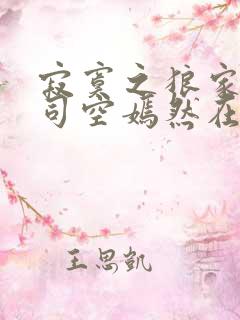 寂寞之狼家
司空嫣然在
王思凯